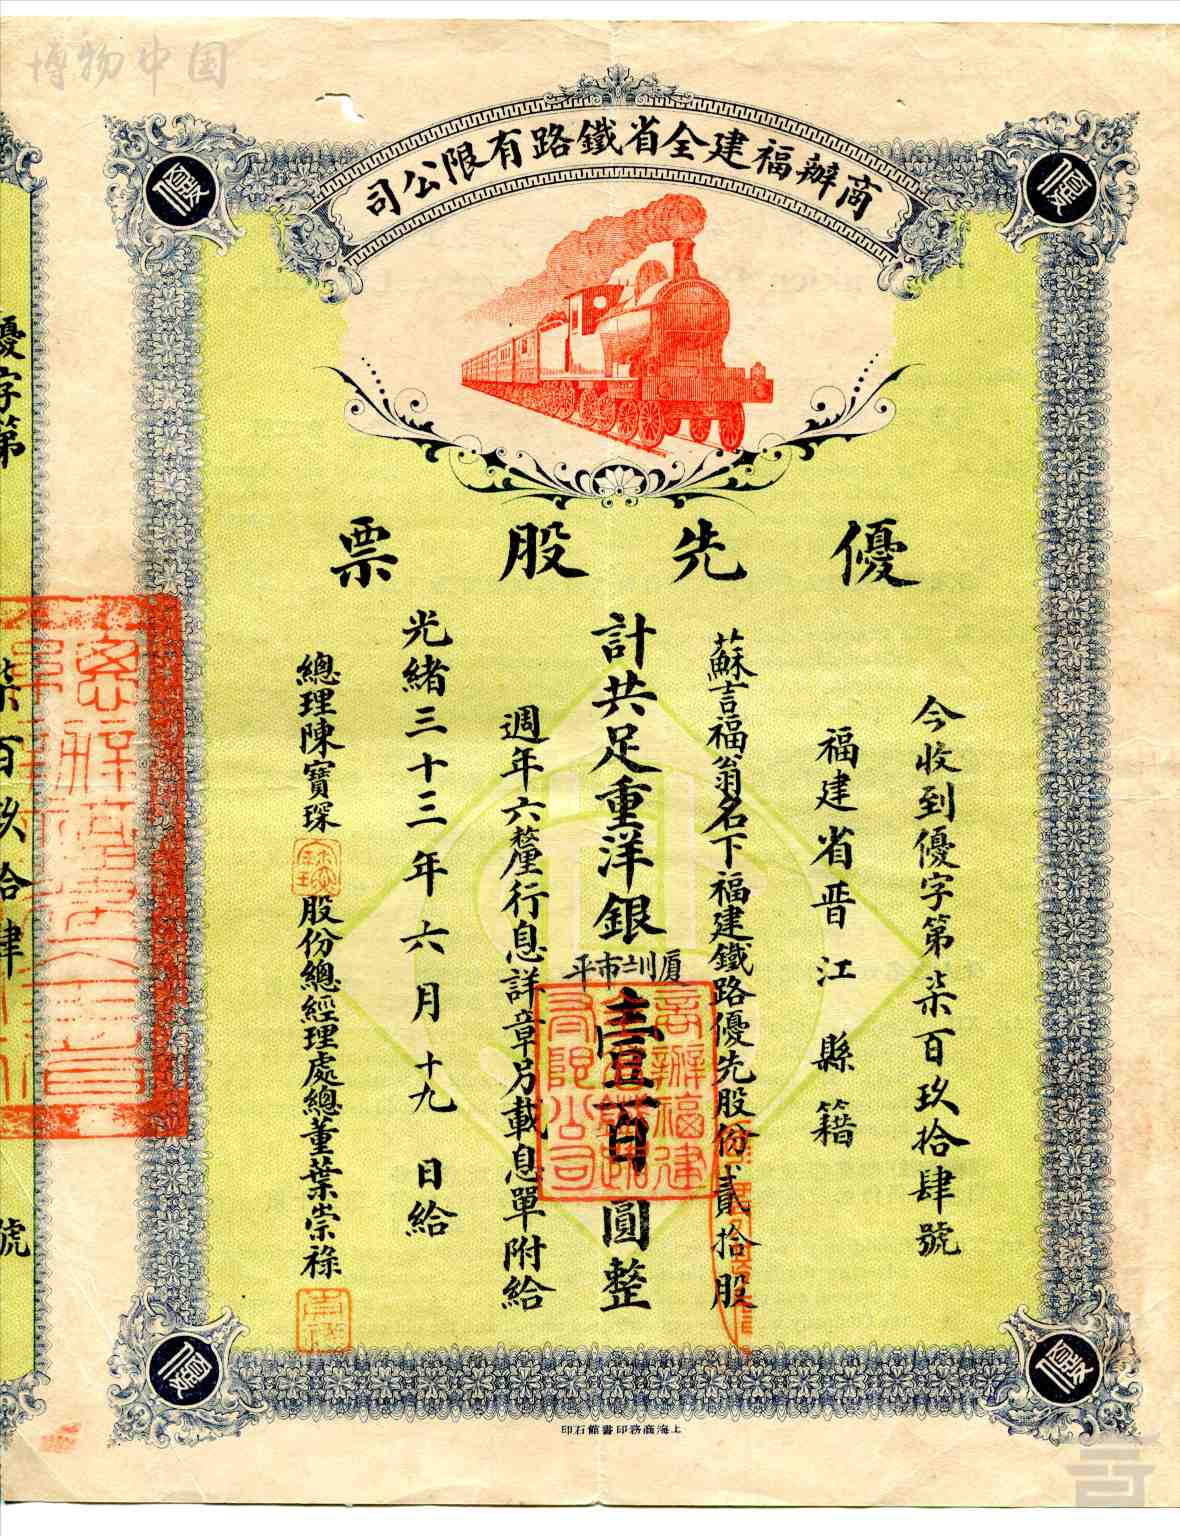 博物中国
商辦福建全省鐵路有限公司
優
優
優先股票
今收到優字第柒百玖拾肆號
福建省晋江縣籍
蘇言福翁名下福建鐵路優先股份貳拾股
計共足重洋銀
市平
壹百圓整
週年六釐行息詳章另載息單附給
光緒三十三年六月十九日給
總理陳寶琛
股份總經理處總董葉崇祿
商辦福建
全省鐵路
有限公司
崇祿
優字第
柒百玖拾肆
號
優
優
上海商務印書館石印